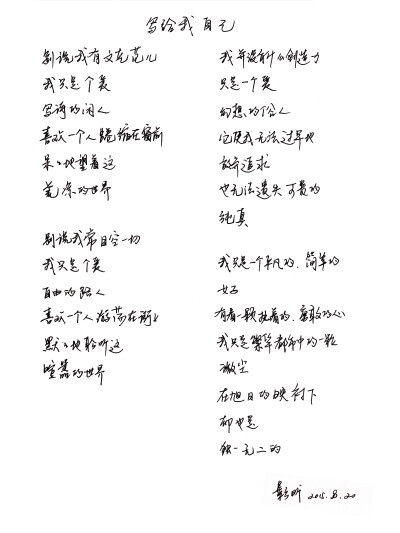 写给我自己
别说我有文艺范儿
我只是个爱
写诗的闲人
喜欢一个人蜷缩在窗前
呆〃地望着这
凉的世界
别说我常目空一切
我只是个爱
自由的路人
喜欢一个人游荡在街上
默〃地聆听这
喧嚣的世界
我并没有什么创造力
只是一个爱
幻想的俗人
它使我无法过早地
放弃追求
也无法遗失可贵的
纯真
我只是一个平凡的、简单的
女子
有着一颗执着的、的心
我只是繁华都市中的一粒
微尘
在旭日的映衬下
却也是
独一无二的
2015.8.20